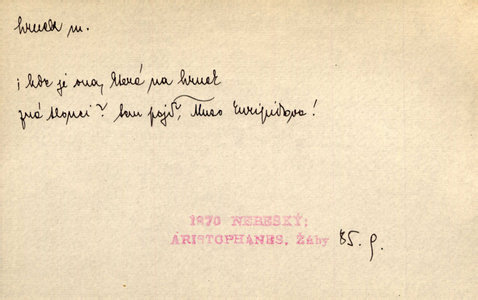 hrnek m.
i kde je ona, která na hrnek
zná tlouci? sem pojď, Muso Euripidova!
1870 NEBESKÝ:
ARISTOPHANES, Žáby 85.